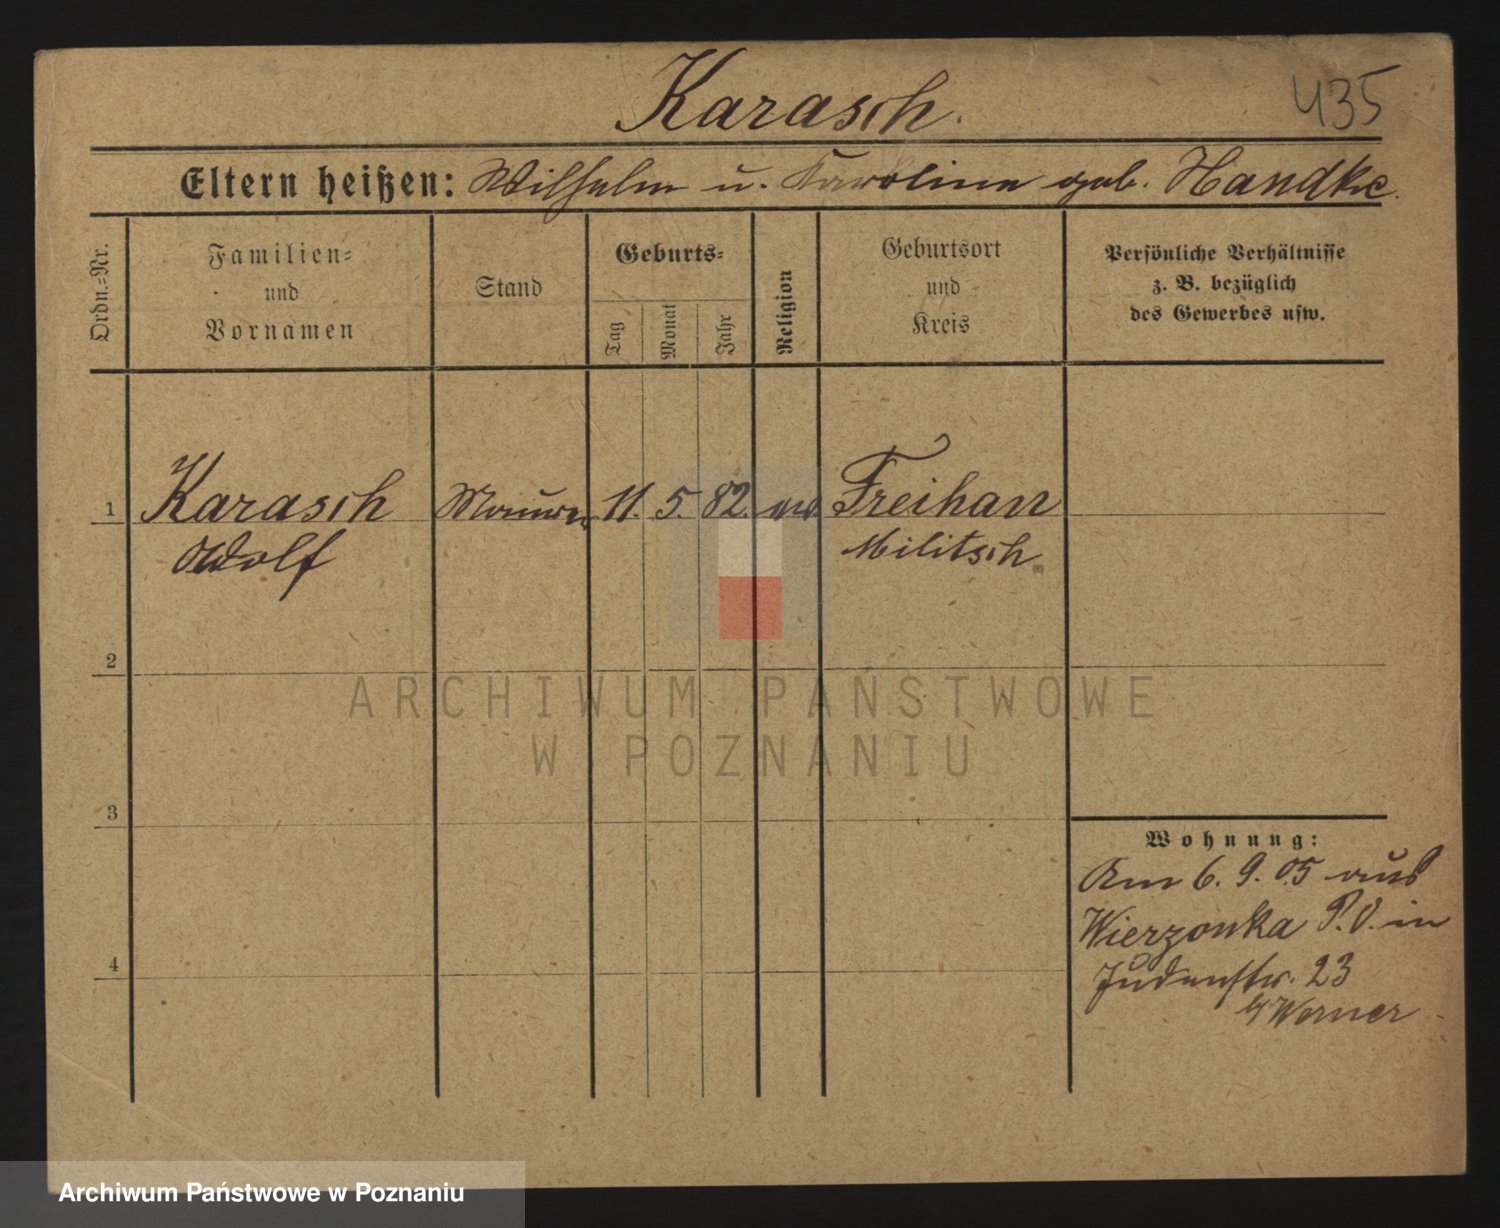 Karasch.
435
Eltern heißen: Wilhelm u. Karoline geb. Handke.
Ordn.-Nr.
Familien-
und
Vornamen
Stand
Geburts-
Tag
Monat
Jahr
Religion
Geburtsort
und
Kreis
Persönliche Verhältnisse
z. B. bezüglich
des Gewerbes usw.
1 Karasch Maurer 11. 5. 82. Freihan
Adolf Militsch
2
3
4
Wohnung:
Am 6. 9. 05 aus
Wierzonka P. O. in
Judenstr. 23
Werner
ARCHIWUM PAŃSTWOWE
W POZNANIU
Archiwum Państwowe w Poznaniu